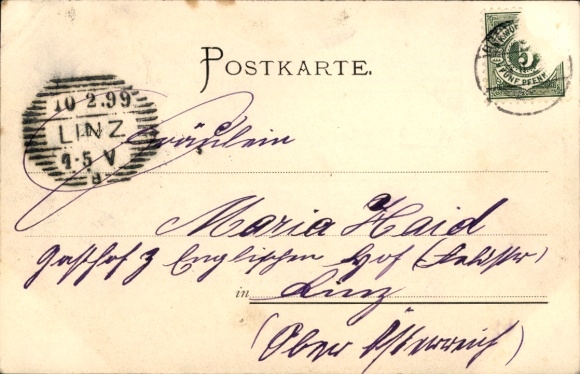 POSTKARTE.
5
FÜNF PFENN
10 2.99
LINZ
9-5 V
Fräulein
Maria Haid
Gasthof z Englischen Hof
in Linz
(Ober Österreich)